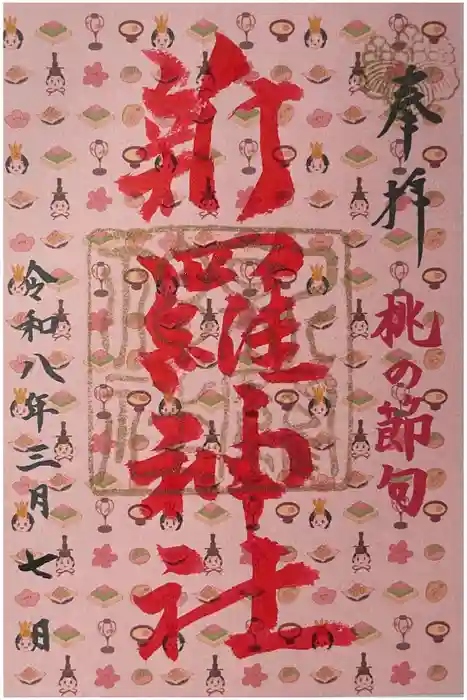 奉拝
桃の節句
新羅神社
令和八年三月七日